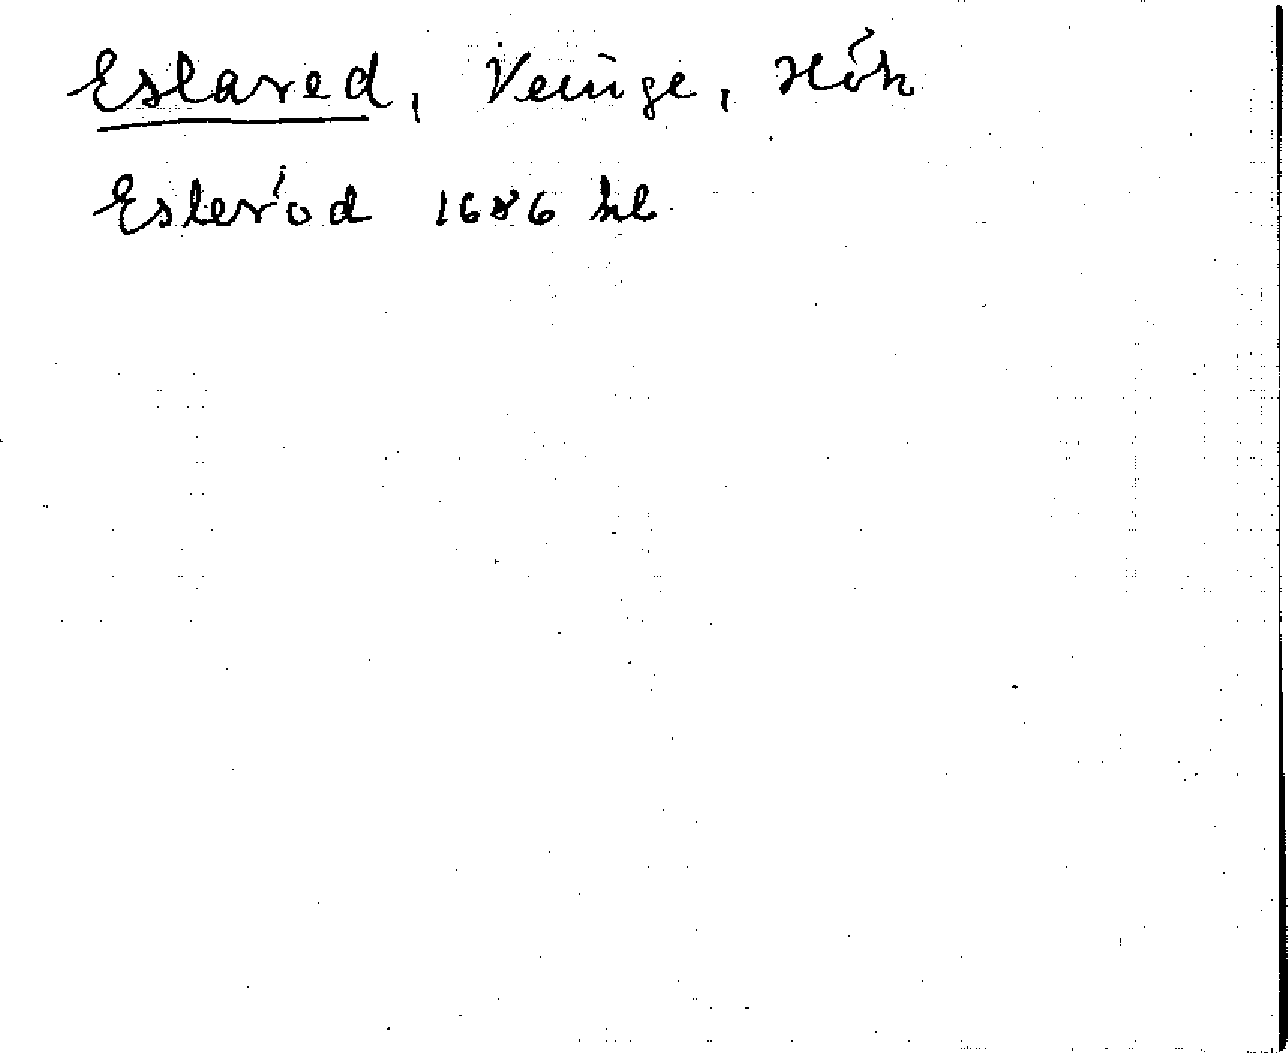 Eslared, Veinge, Hök
Esleröd 1686 hl